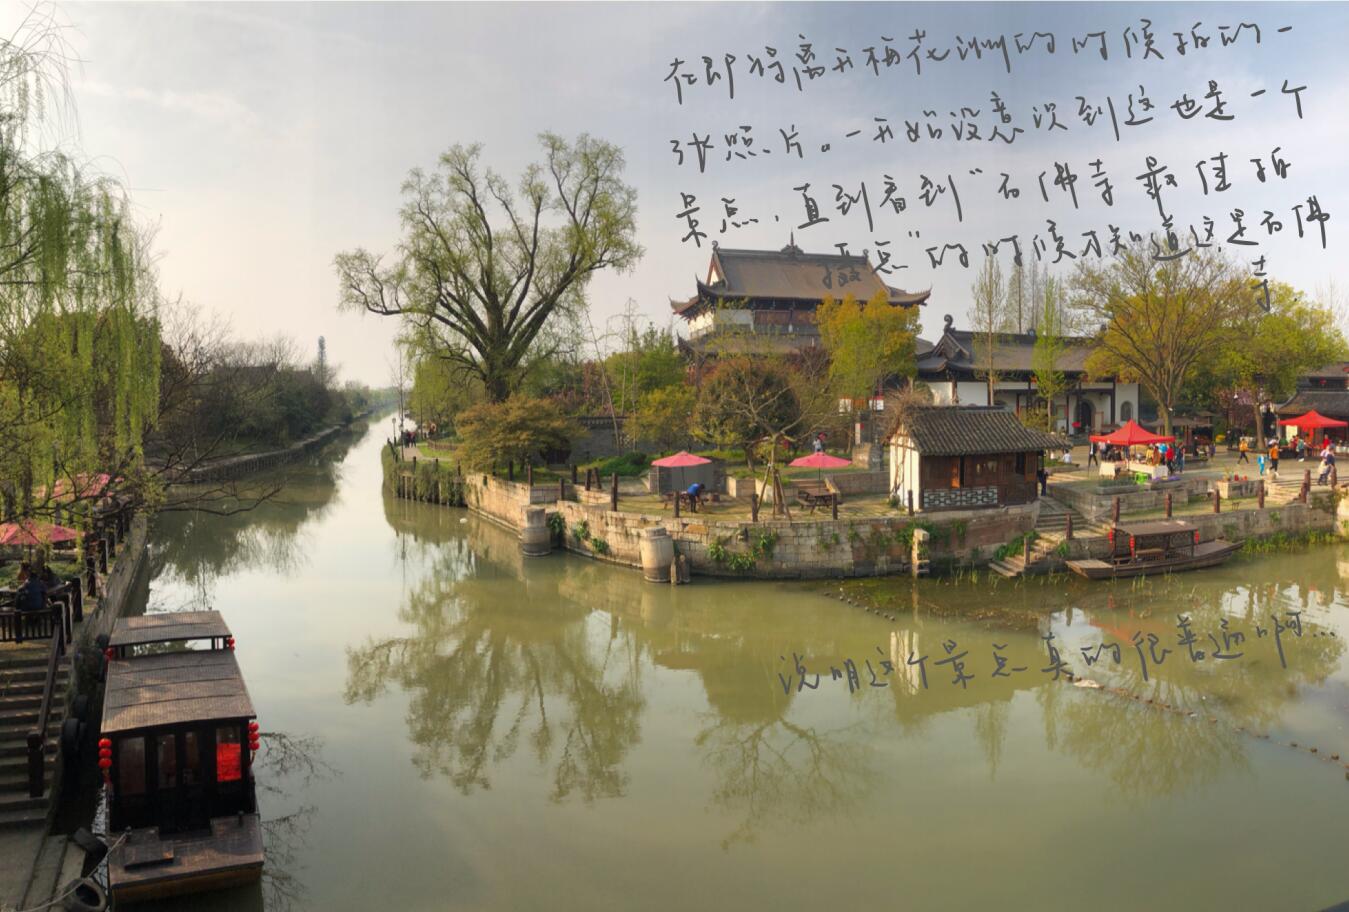 在即将离开梅花洲的时候拍的一
张照片。一开始没意识到这也是一个
景点，直到看到“石佛寺最佳拍
摄点”的时候才知道这是石佛
寺.
说明这个景点真的很普通啊...